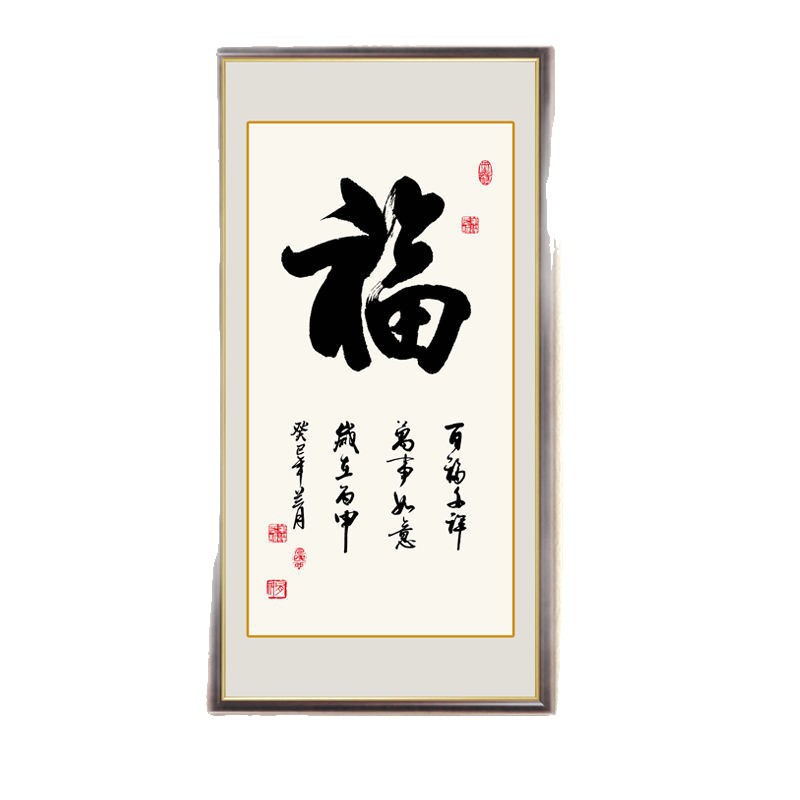 福
百福千祥
萬事如意
歲在丙申
癸巳年蘭月